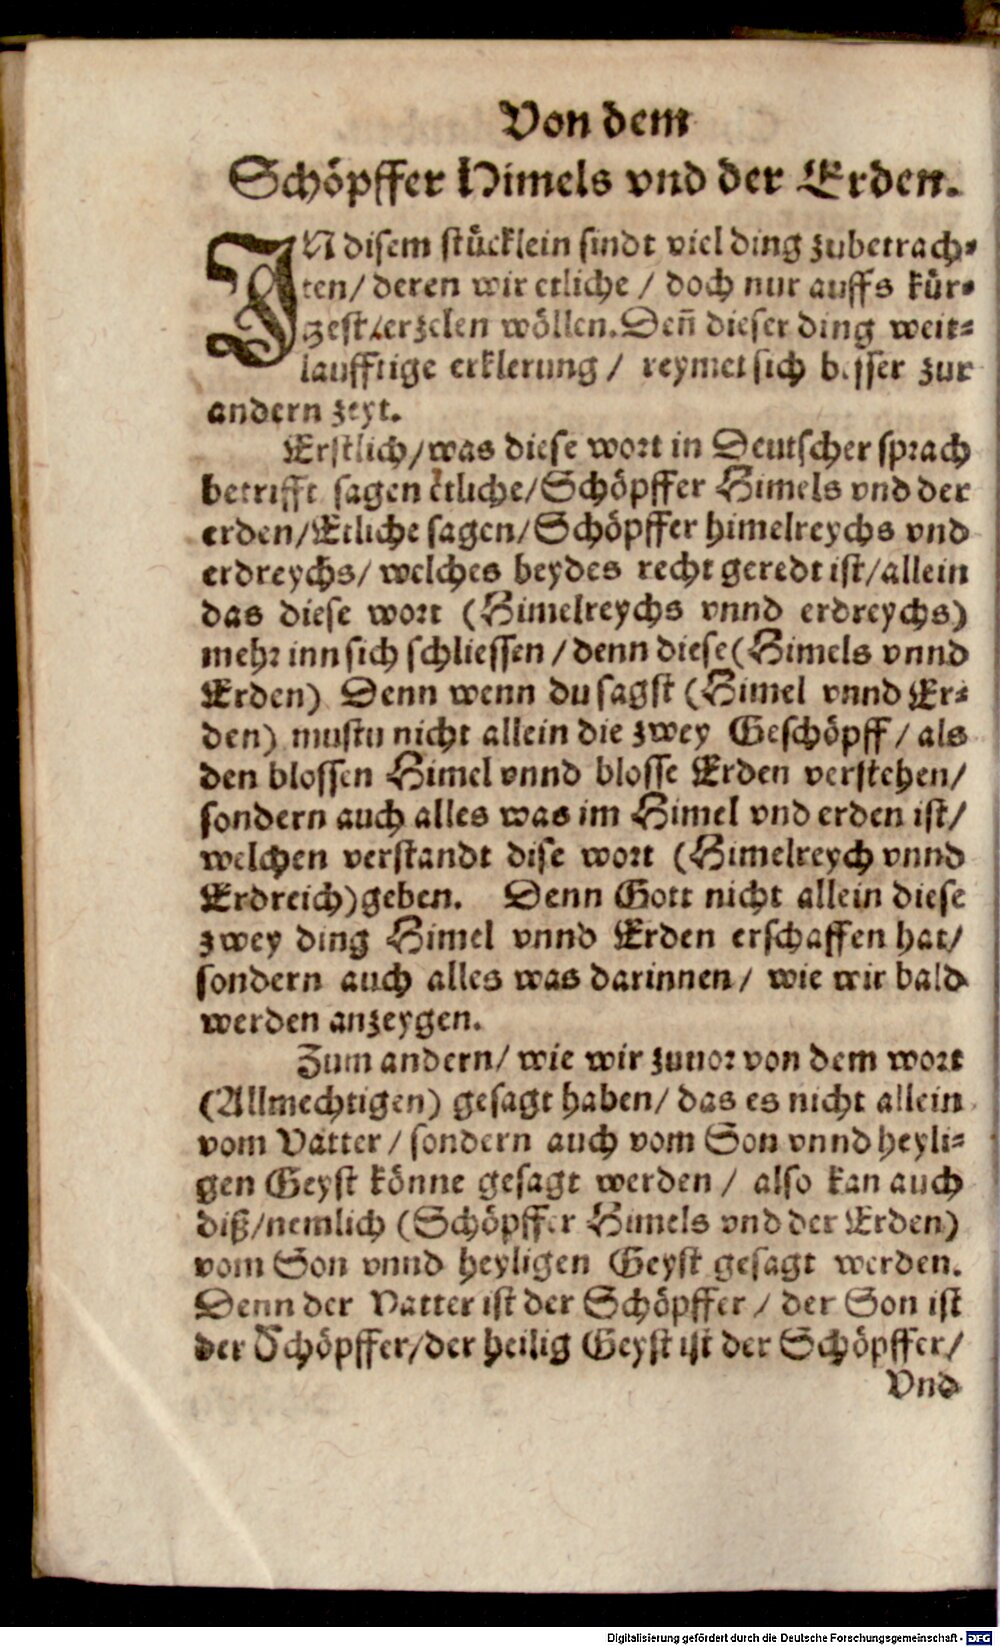 Von dem
Schöpffer Himels vnd der Erden.
IN disem stücklein sindt viel ding zubetrach-
ten/ deren wir etliche / doch nur auffs kür-
zest/erzelen wöllen. Den̄ dieser ding weit-
laufftige erklerung / reymet sich besser zur
andern zeyt.
Erstlich/was diese wort in Deutscher sprach
betrifft sagen etliche/Schöpffer Himels vnd der
erden/Etliche sagen/Schöpffer himelreychs vnd
erdreychs/ welches beydes recht geredt ist/allein
das diese wort (Himelreychs vnnd erdreychs)
mehr inn sich schliessen / denn diese (Himels vnnd
Erden) Denn wenn du sagst (Himel vnnd Er-
den) mustu nicht allein die zwey Geschöpff / als
den blossen Himel vnnd blosse Erden verstehen/
sondern auch alles was im Himel vnd erden ist/
welchen verstandt dise wort (Himelreych vnnd
Erdreich)geben. Denn Gott nicht allein diese
zwey ding Himel vnnd Erden erschaffen hat/
sondern auch alles was darinnen/ wie wir bald
werden anzeygen.
Zum andern/ wie wir zuuor von dem wort
(Allmechtigen) gesagt haben/ das es nicht allein
vom Vatter / sondern auch vom Son vnnd heyli-
gen Geyst könne gesagt werden / also kan auch
diß/nemlich (Schöpffer Himels vnd der Erden)
vom Son vnnd heyligen Geyst gesagt werden.
Denn der Vatter ist der Schöpffer / der Son ist
der Schöpffer/der heilig Geyst ist der Schöpffer/
Vnd
Digitalisierung gefördert durch die Deutsche Forschungsgemeinschaft - DFG